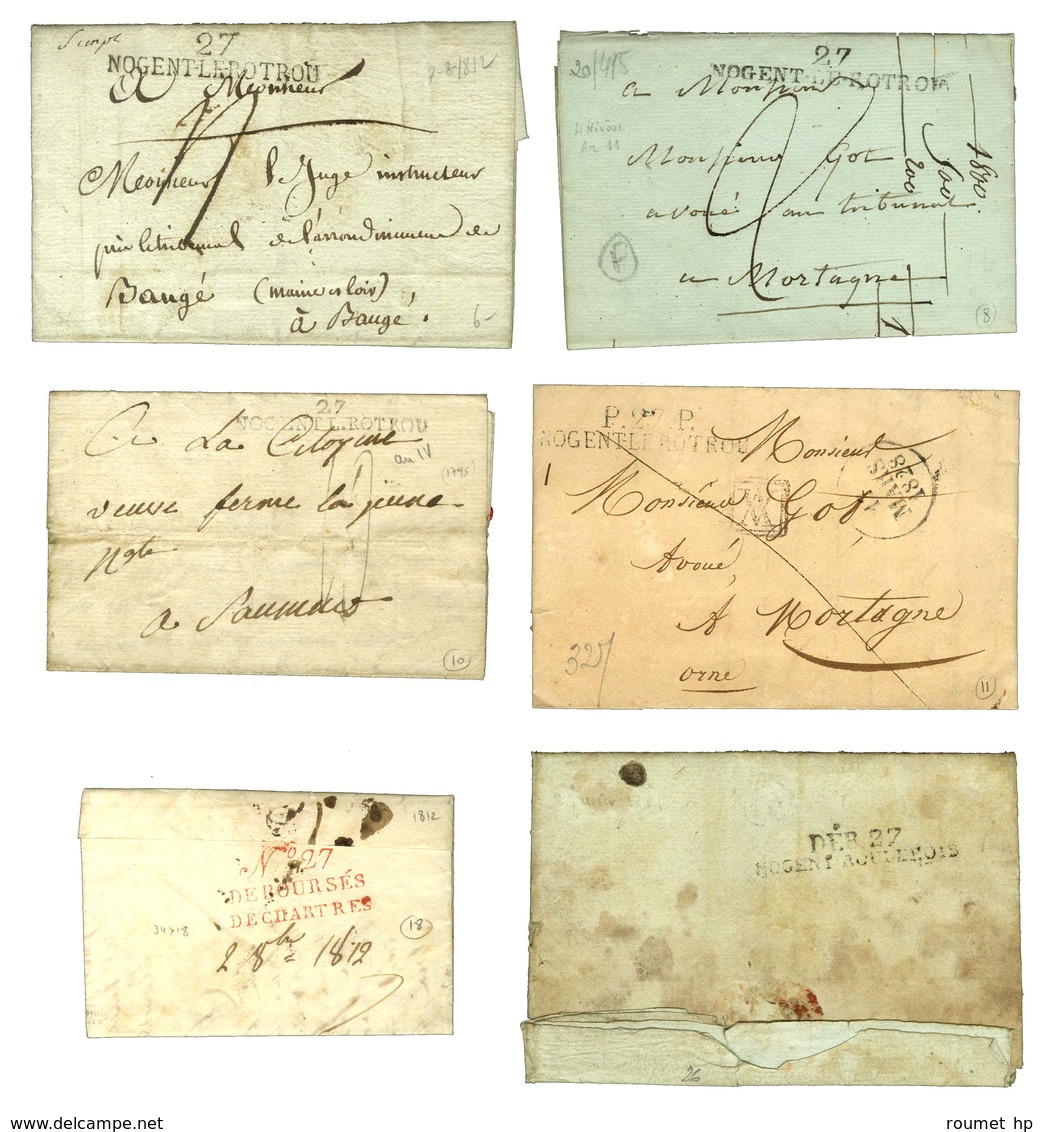 Simple
27
NOGENT-LE-ROTROU
2-8-1812
A Monsieur
4
Monsieur le Juge instructeur
près le tribunal de l'arrondissement de
Baugé (maine et loir)
à Baugé.
6-
20/4/5
27
NOGENT-LE-ROTROU
a Monsieur
4 Nivose
An 11
2
Monsieur Got
avoué au tribunal
a Mortagne
F
200
1800
1
8
27
NOGENT L. ROTROU
A La Citoyenne
an IV
(1795)
veuve ferme la jeune
Ngte
a Saumur
10
P. 27. P.
NOGENT-LE-ROTROU
Monsieur
MARS
1828
Monsieur Got
Avoué
A Mortagne
orne
327
11
1812
No 27
DEBOURSÉS
DE CHARTRES
34x18
18
2 8bre 1812
DÉB. 27
NOGENT-ROULEBOIS
26
roumet hp